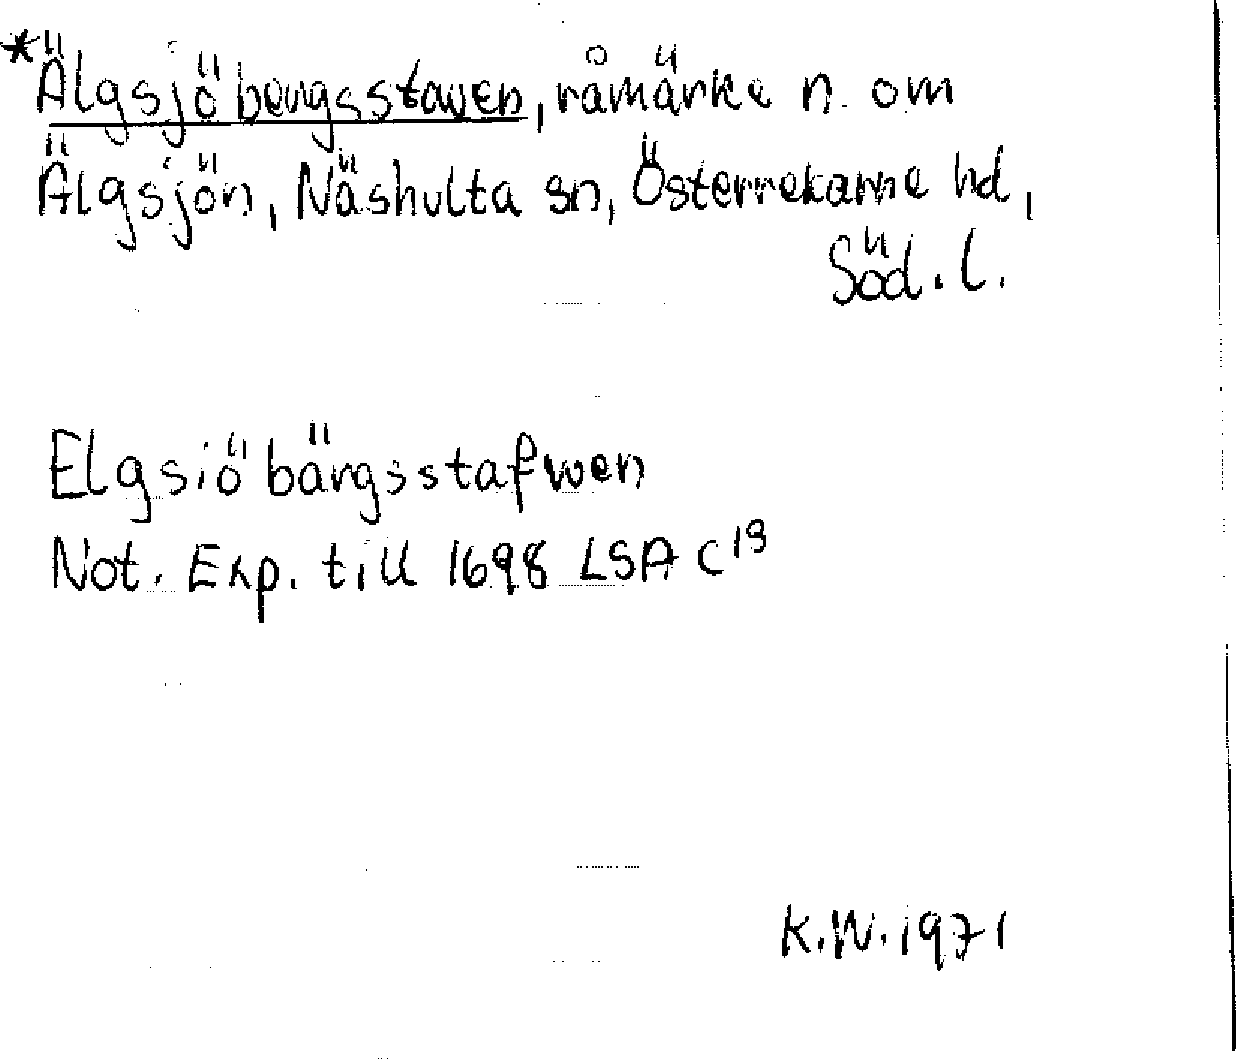 *Älgsjöbergsstaven, råmärke n. om
Älgsjön, Näshulta sn, Österrekarne hd,
Söd. l.
Elgsiöbärgsstafwen
Not. Exp. till 1698 LSA C19
K.W. 1971